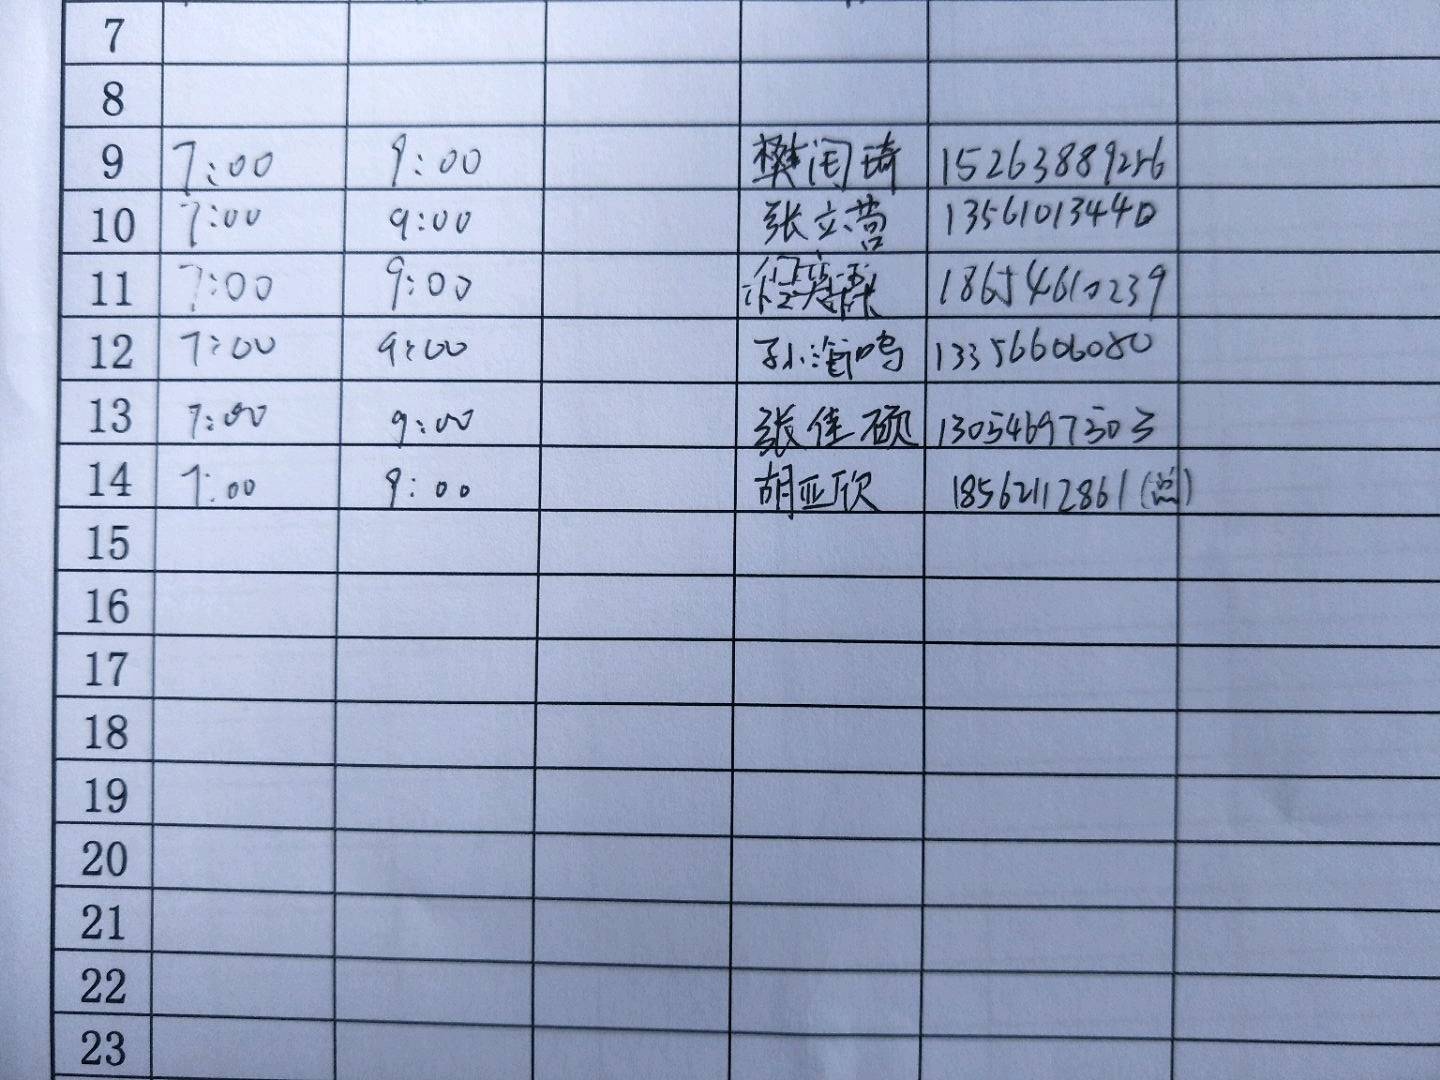 7
8
9 7:00 9:00 樊闰琦 15263889256
10 7:00 9:00 张立营 13561013440
11 7:00 9:00 18654610239
12 7:00 9:00 孙 鸣 13356606080
13 7:00 9:00 张佳硕 13054697503
14 7:00 9:00 胡亚欣 18562112861(总)
15
16
17
18
19
20
21
22
23